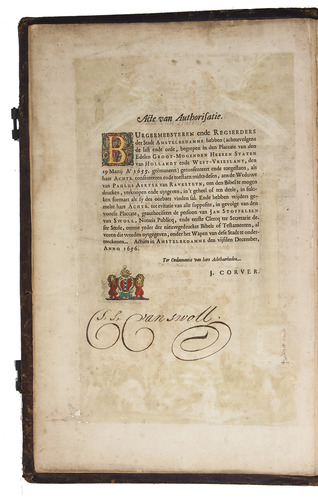 Acte van Authorisatie.
BURGERMEESTEREN ende REGIERDERS
der Stadt AMSTELREDAMME hebben (achtervolgens
de last ende orde, begrepen in den Placcate van den
Edelen GROOT-MOGENDEN HEEREN STATEN
van HOLLANDT ende WEST-VRIESLANT, den
19 Maerij A° 1655. geëmaneert) geconsenteert ende toegestaen, als
haer ACHTB. consenteren ende toestaen midts desen, aende Weduwe
van PAULUS AERTSZ van RAVESTEYN, om den Bibel te mogen
drucken, verkoopen ende uytgeven, in 't geheel of ten deele, in sulc-
ken formaet als sy des oorbaer vinden sal. Ende hebben wijders ge-
melte haer ACHTB. ter evitatie van alle suppositie, in gevolge van den
voorsz Placcate, geauthoriseert de persoon van JAN STOFFELSEN
van SWOLL, Notaris Publicq, ende eerste Clercq ter Secretarie de-
ser Stede, omme yeder der nieuwgedruckte Bibels of Testamenten, al
voren die werden uytgegeven, onder het Wapen van dese Stadt te onder-
teeckenen. Actum in AMSTELREDAMME den vijfden December,
ANNO 1656.
Ter Ordonnantie van haer Achtbaerheden.
J. CORVER.
J. S. van swoll.